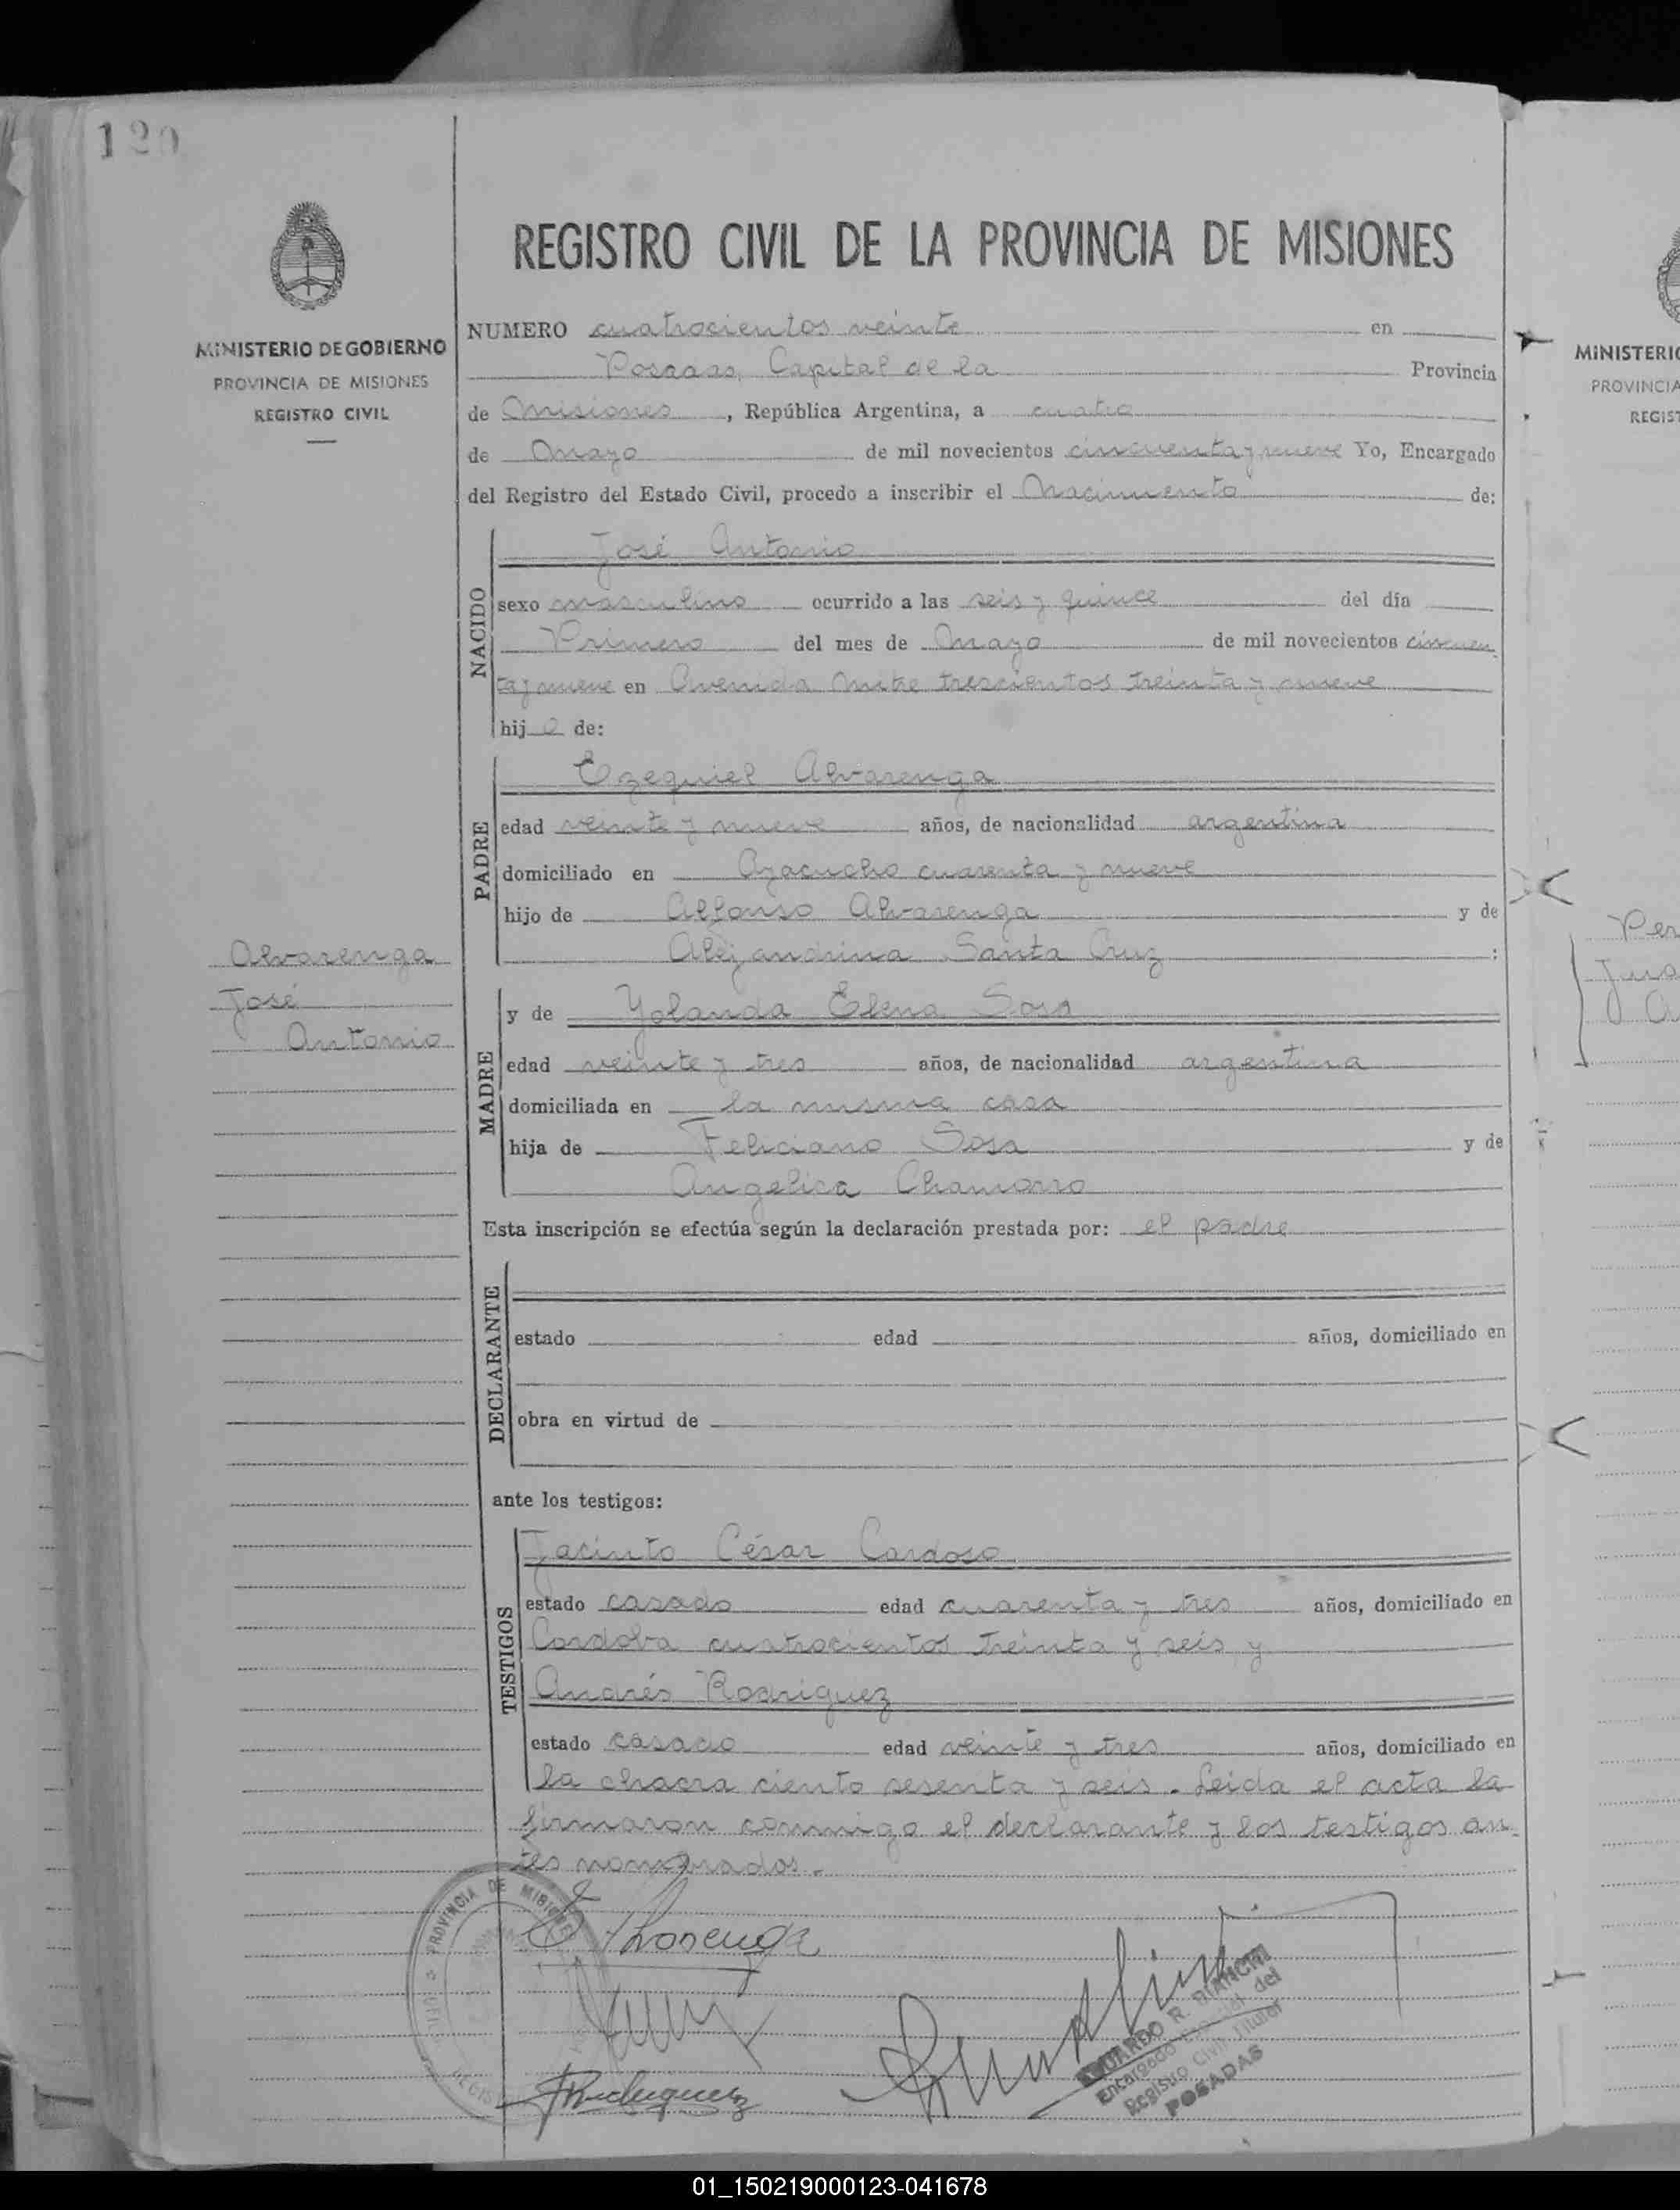 120
REGISTRO CIVIL DE LA PROVINCIA DE MISIONES
MINISTERIO DE GOBIERNO
PROVINCIA DE MISIONES
REGISTRO CIVIL
NUMERO cuatrocientos veinte en
Posadas, Capital de la Provincia
de Misiones, República Argentina, a cuatro
de Mayo de mil novecientos cincuenta y nueve Yo, Encargado
del Registro del Estado Civil, procedo a inscribir el Nacimiento de:
NACIDO
José Antonio
sexo masculino ocurrido a las seis y quince del día
Primero del mes de Mayo de mil novecientos cincuen
ta y nueve en Avenida Mitre trescientos treinta y nueve
hijo de:
PADRE
Ezequiel Alvarenga
edad veinte y nueve años, de nacionalidad argentina
domiciliado en Ayacucho cuarenta y nueve
hijo de Alfonso Alvarenga y de
Alejandrina Santa Cruz :
Alvarenga
José
Antonio
MADRE
y de Yolanda Elena Sosa
edad veinte y tres años, de nacionalidad argentina
domiciliada en la misma casa
hija de Feliciano Sosa y de
Angelica Chamorro
Esta inscripción se efectúa según la declaración prestada por: el padre
DECLARANTE
estado edad años, domiciliado en
obra en virtud de
ante los testigos:
TESTIGOS
Jacinto César Cardoso
estado casado edad cuarenta y tres años, domiciliado en
Cordoba cuatrocientos treinta y seis y
Andrés Rodriguez
estado casado edad veinte y tres años, domiciliado en
la chacra ciento sesenta y seis. Leida el acta la
firmaron conmigo el declarante y los testigos an
tes nombrados.
PROVINCIA DE MISIONES
E Alvarenga
ARødriguez
EDUARDO R. BIANCHI
Encargado del
Registro Civil Titular
POSADAS
MINISTERIO
PROVINCIA
REGIST
Per
Jua
A
01_150219000123-041678